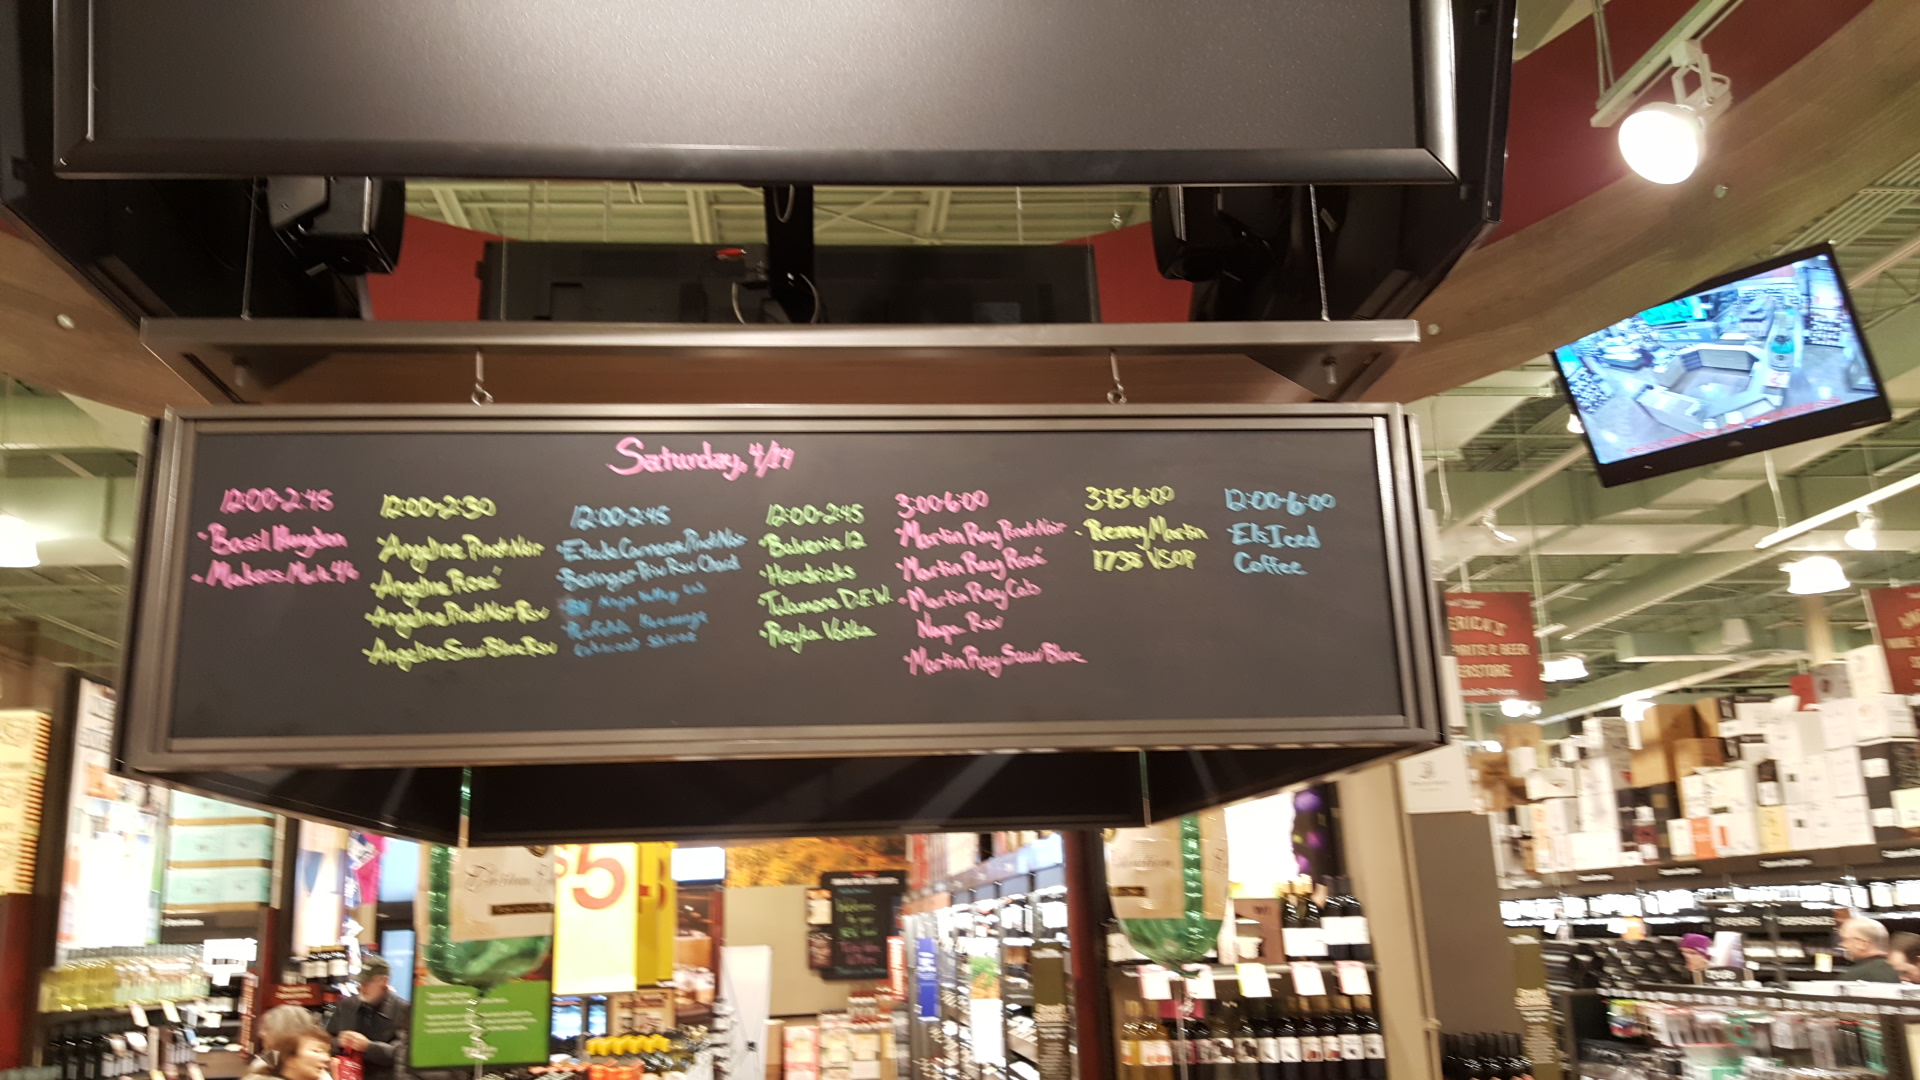 Saturday, 4/14
12:00-2:45
·Basil Hayden
·Makers Mark 46
12:00-2:30
·Angeline Pinot Noir
·Angeline Rosé
·Angeline Pinot Noir Rsv
·Angeline Sauv Blanc Rsv
12:00-2:45
·Etude Carneros Pinot Noir
·Beringer Priv Rsv Chard
·BV Napa Valley Cab
·Penfolds
Cabernet Shiraz
12:00-2:45
·Bakenie 12
·Hendricks
·Tulamore D.E.W.
·Reyka Vodka
3:00-6:00
·Martin Ray Pinot Noir
·Martin Ray Rosé
·Martin Ray Cab
Napa Rsv
·Martin Ray Sauv Blanc
3:15-6:00
·Remy Martin
1738 VSOP
12:00-6:00
·El's Iced
Coffee
ERICA'S
PIRITS & BEER
ERSTORE
$5